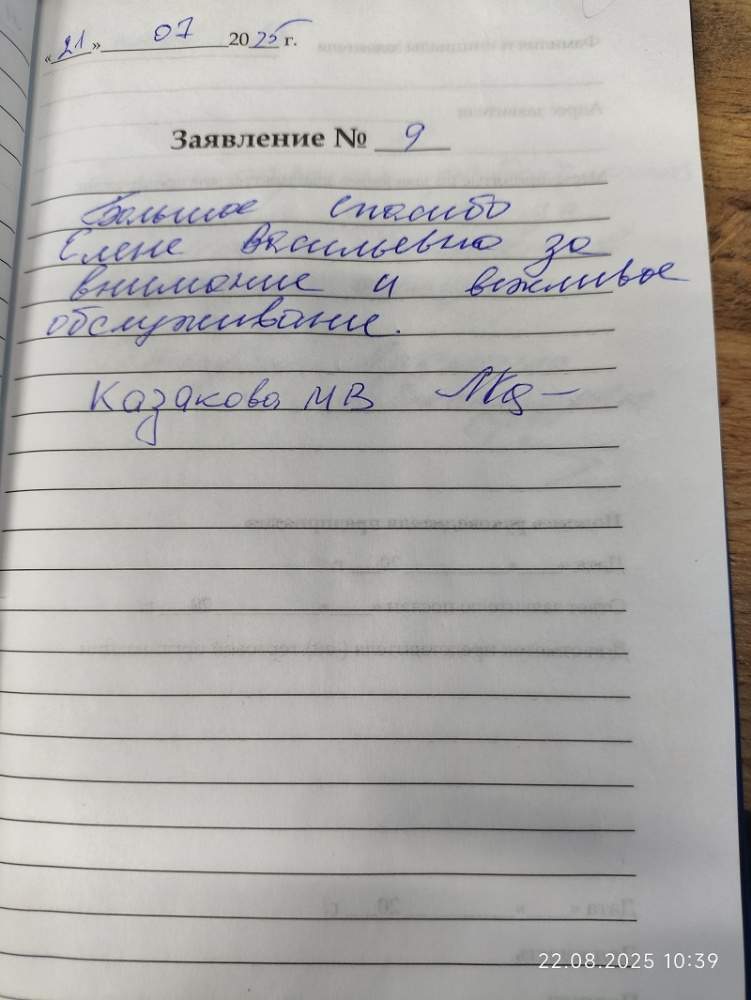 «21» 07 2025 г.
Заявление № 9
Большое спасибо
Елене Васильевна за
внимание и вежливое
обслуживание.
Казакова МВ
22.08.2025 10:39